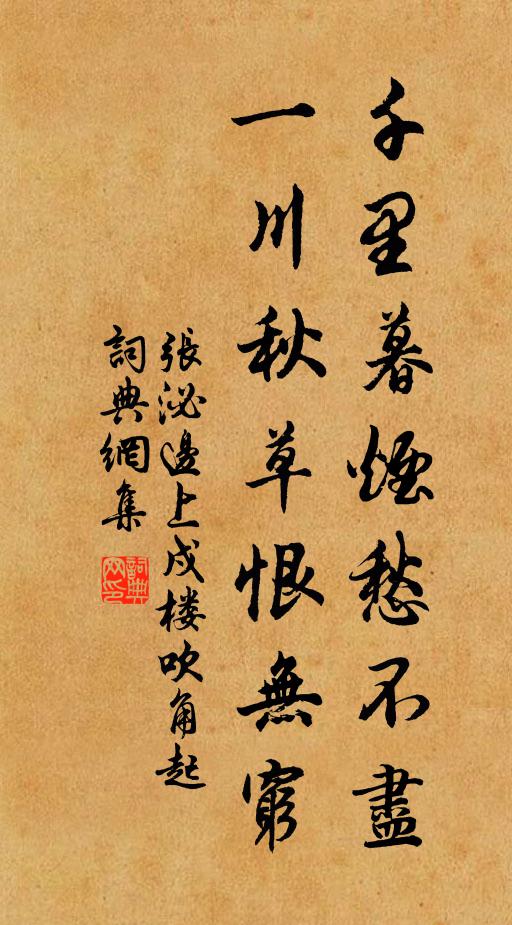 千里暮煙愁不盡
一川秋草恨無窮
張泌邊上戍楼吹角起
詞典網集
詞典網印